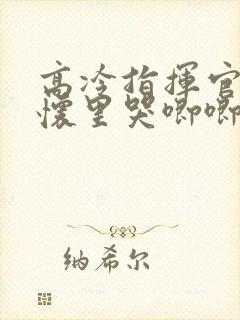 高冷指揮官
懷里哭唧唧
纳希尔